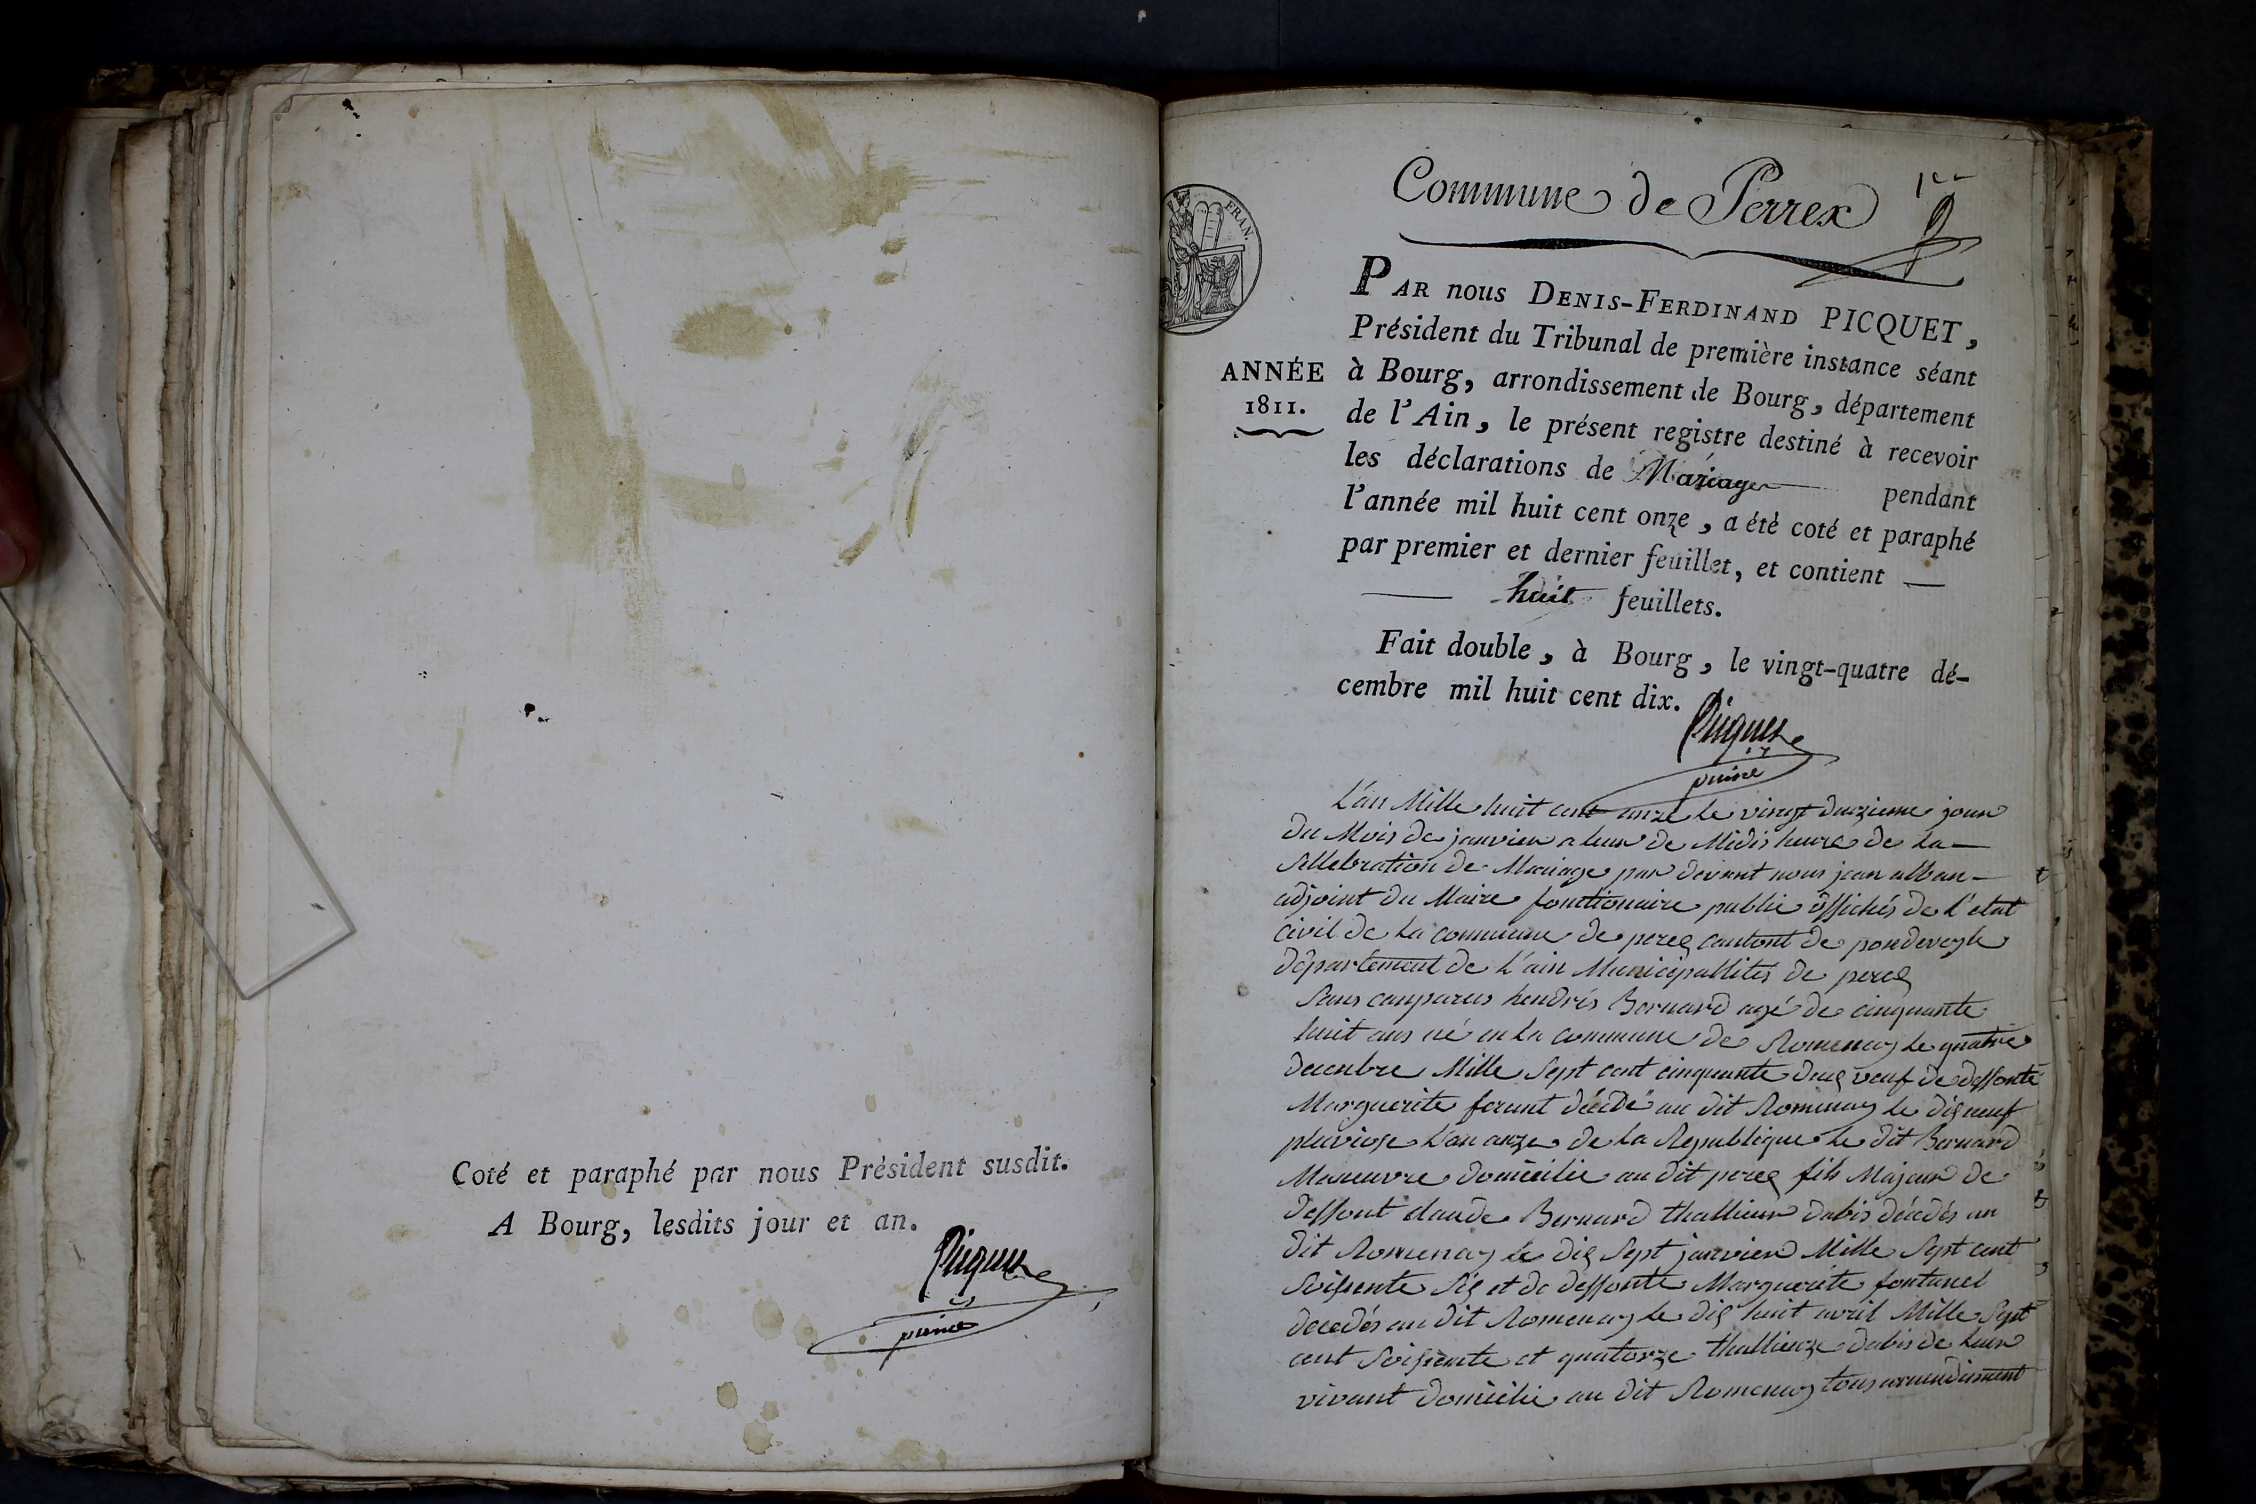 Coté et paraphé par nous Président susdit.
A Bourg, lesdits jour et an.
Picquet
Commune de Perrex
1er
FRAN.
PAR nous DENIS-FERDINAND PICQUET,
Président du Tribunal de première instance séant
ANNÉE
1811.
à Bourg, arrondissement de Bourg, département
de l'Ain, le présent registre destiné à recevoir
les déclarations de Mariages pendant
l'année mil huit cent onze, a été coté et paraphé
par premier et dernier feuillet, et contient —
— huit feuillets.
Fait double, à Bourg, le vingt-quatre dé-
cembre mil huit cent dix.
Picquet
L'an Mille huit cent onze le vingt duezieme jour
du Mois de janvier a leur de Midis heure de La
Sellebration de Mariage par devant nous jean alban
adjoint du Maire fonctionaire public offichés de L'etat
civil de La commune de pereq cantont de pondeveyle
département de L'ain Municipallités de pereq
Sans comparus hendris Bernard agé de cinquante
huit ans né en La commune de Romenay Le quatre
decenbre Mille Sept cent cinquante deuq veuf de deffonte
Marguerite ferant décédé au dit Romenay Le diq neuf
pluviose L'an onze de La Republique Le dit Bernard
Maneuvre domicilie au dit pereq fils Majeur de
deffont claude Bernard thallieur dabis décédés au
dit Romenay Le diq Sept janvier Mille Sept cent
Soissente Siq et de deffonte Marguerite fontanel
decedés au dit Romenay Le diq huit avril Mille Sept
cent Soissente et quatorze thallieuze dabis de Leur
vivant domicilie au dit Romenay tous